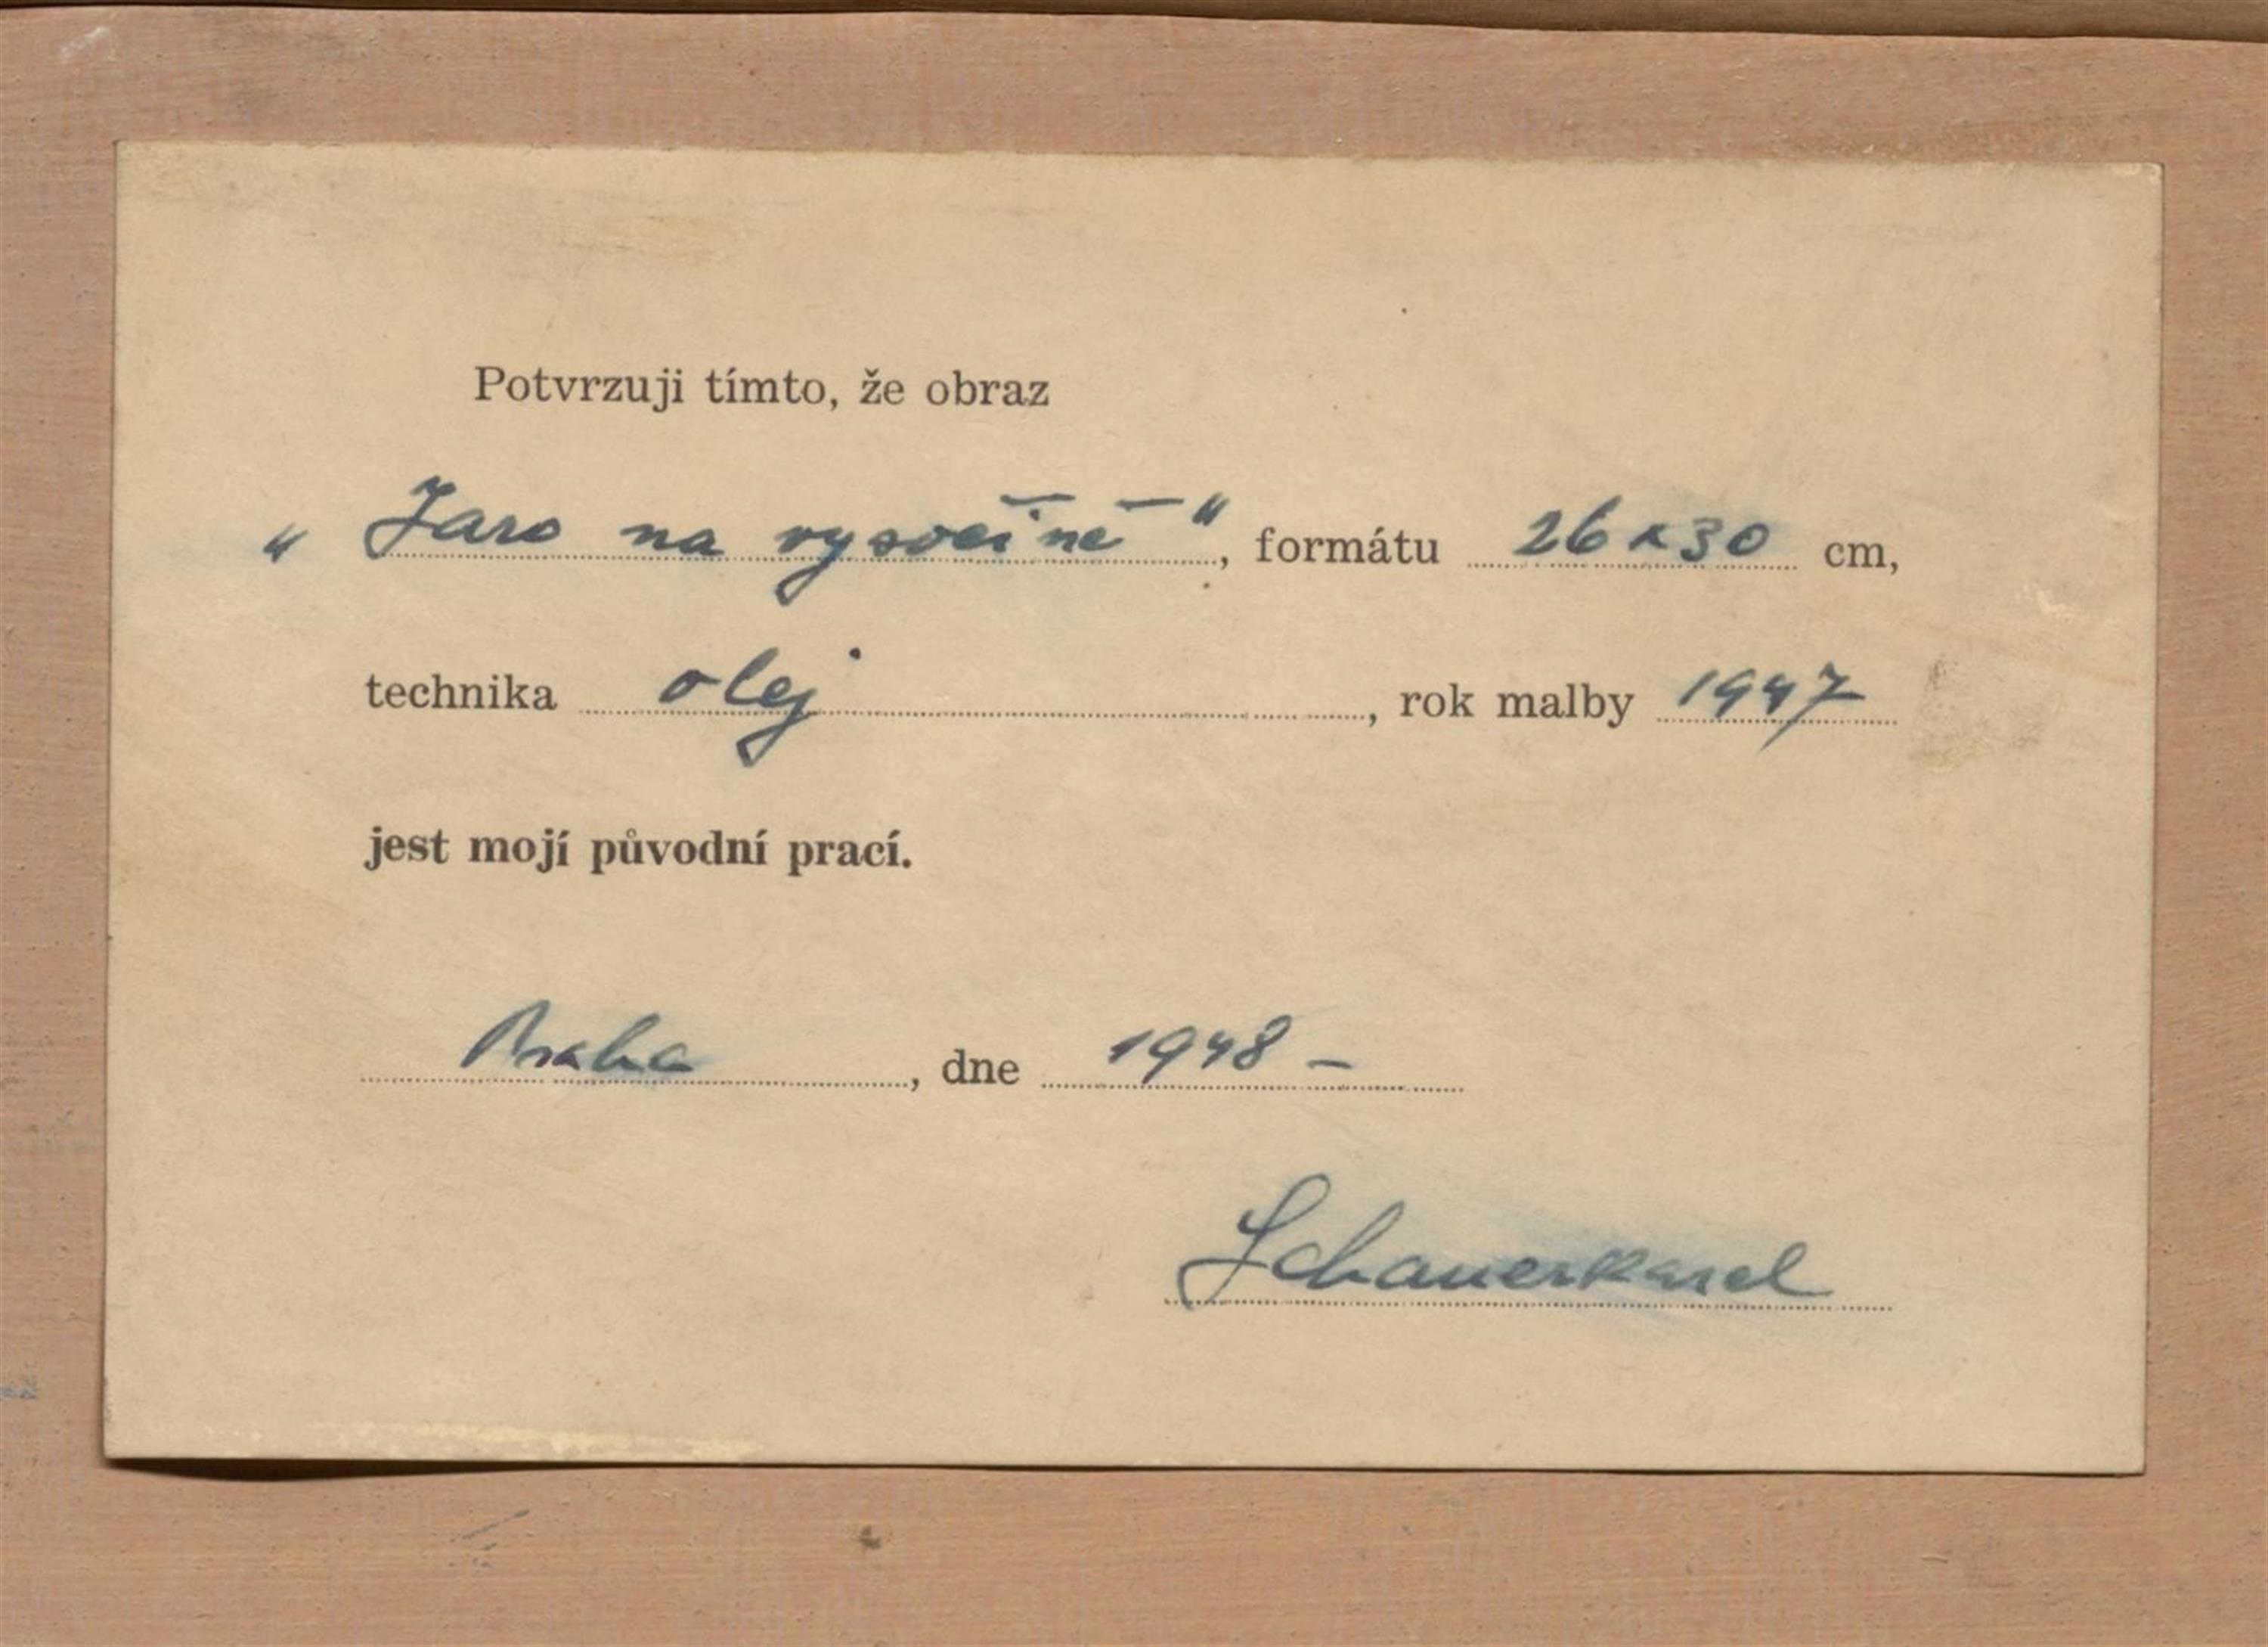 Potvrzuji tímto, že obraz
„ Jaro na vysočině “, formátu 26 x 30 cm,
technika olej, rok malby 1947
jest mojí původní prací.
Praha, dne 1948 –
Schauerkarel